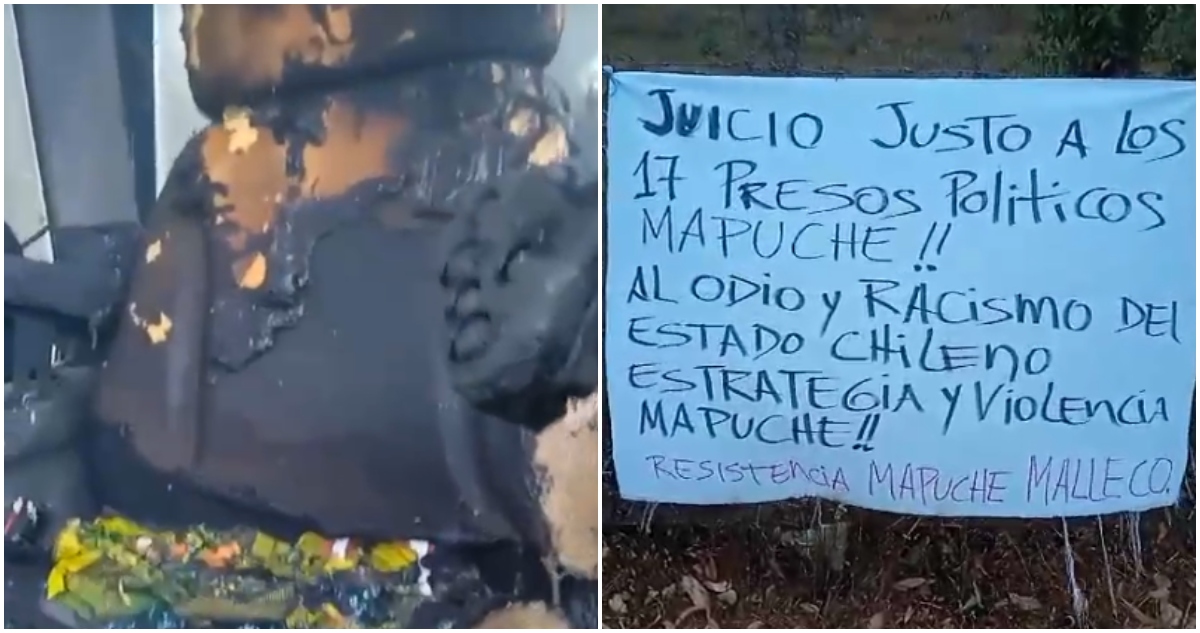 JUICIO JUSTO A LOS
17 PRESOS POLITICOS
MAPUCHE!!
AL ODIO Y RACISMO DEL
ESTADO CHILENO
ESTRATEGIA Y VIOLENCIA
MAPUCHE!!
RESISTENCIA MAPUCHE MALLECO.